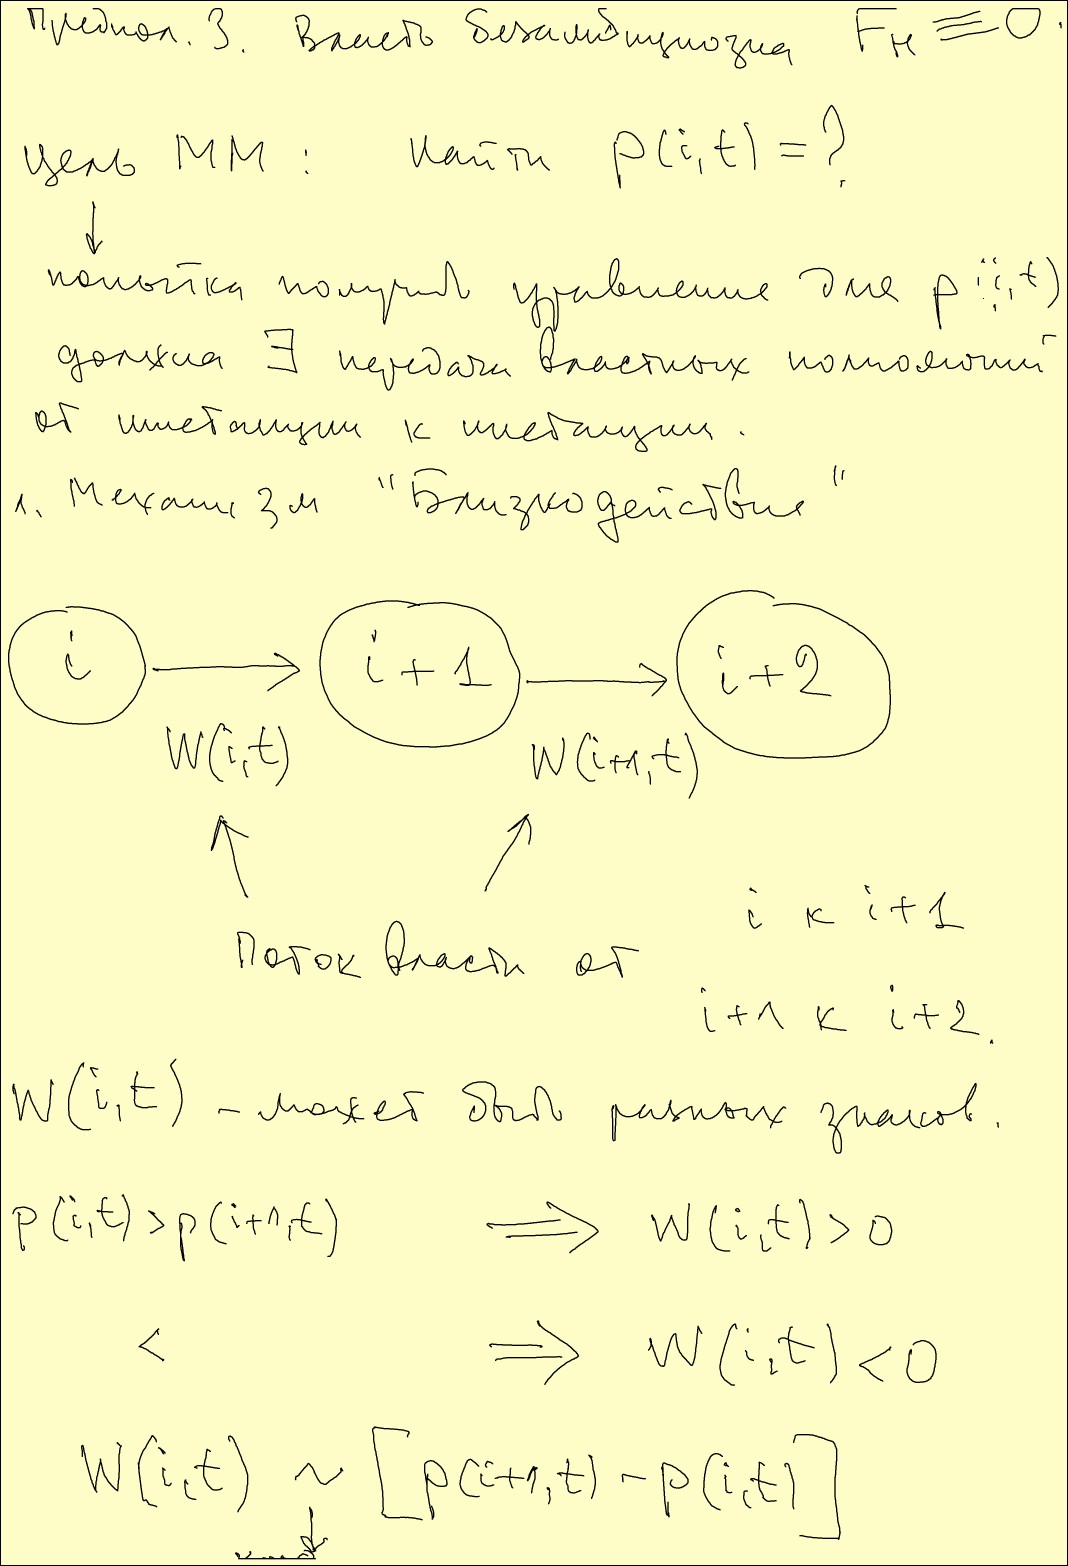 Предпол. 3. Власть безамбициозна F_н ≡ 0.
Цель ММ : найти p(i,t) = ?
↓
попытка получить уравнение для p(i,t)
должна ∃ передача властных полномочий
от инстанции к инстанции.
1. Механизм "Близкодействия"
i → i+1 → i+2
W(i,t) W(i+1,t)
Поток власти от i к i+1
i+1 к i+2.
W(i,t) – может быть разных знаков.
p(i,t) > p(i+1,t) ⇒ W(i,t) > 0
< ⇒ W(i,t) < 0
W(i,t) ~ [p(i+1,t) – p(i,t)]
↓